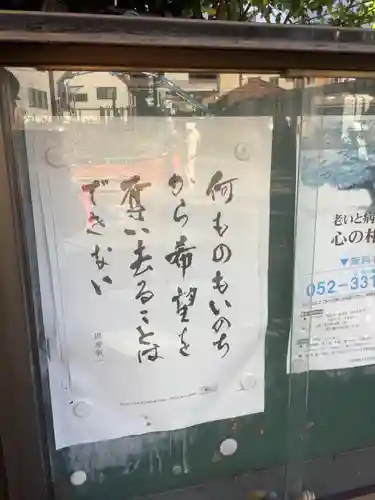 何ものもいのち
から希望を
奪い去ることは
できない
老いと病
心の相
052-331